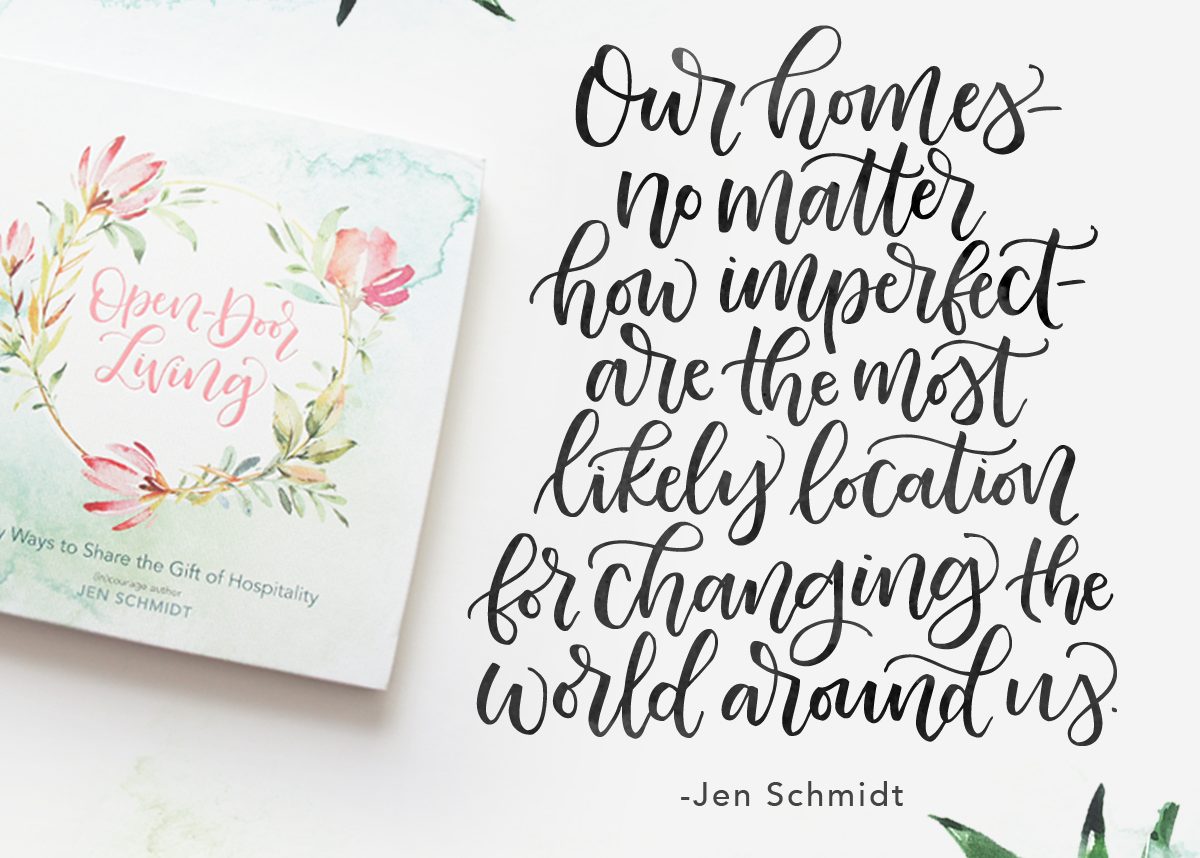 Our homes-
no matter
how imperfect-
are the most
likely location
for changing the
world around us.
-Jen Schmidt
Open-Door
Living
Ways to Share the Gift of Hospitality
(in)courage author
JEN SCHMIDT